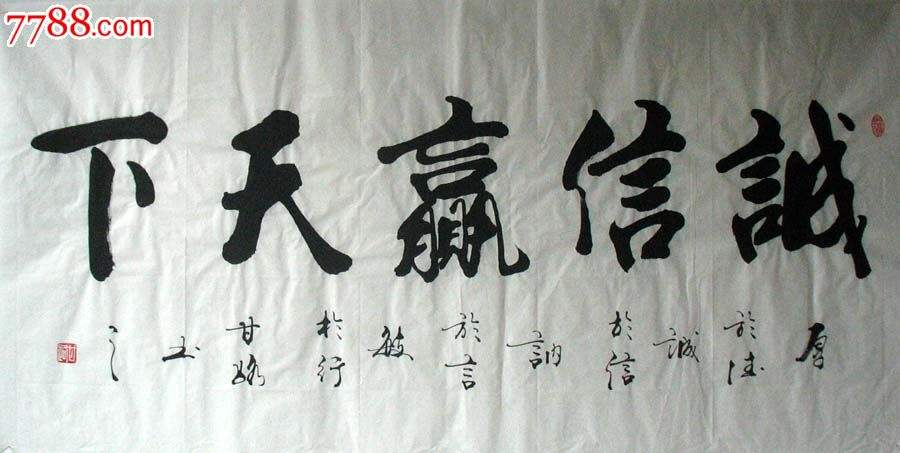 7788.com
誠信贏天下
厚於德誠於信訥於言敏於行甘路書之